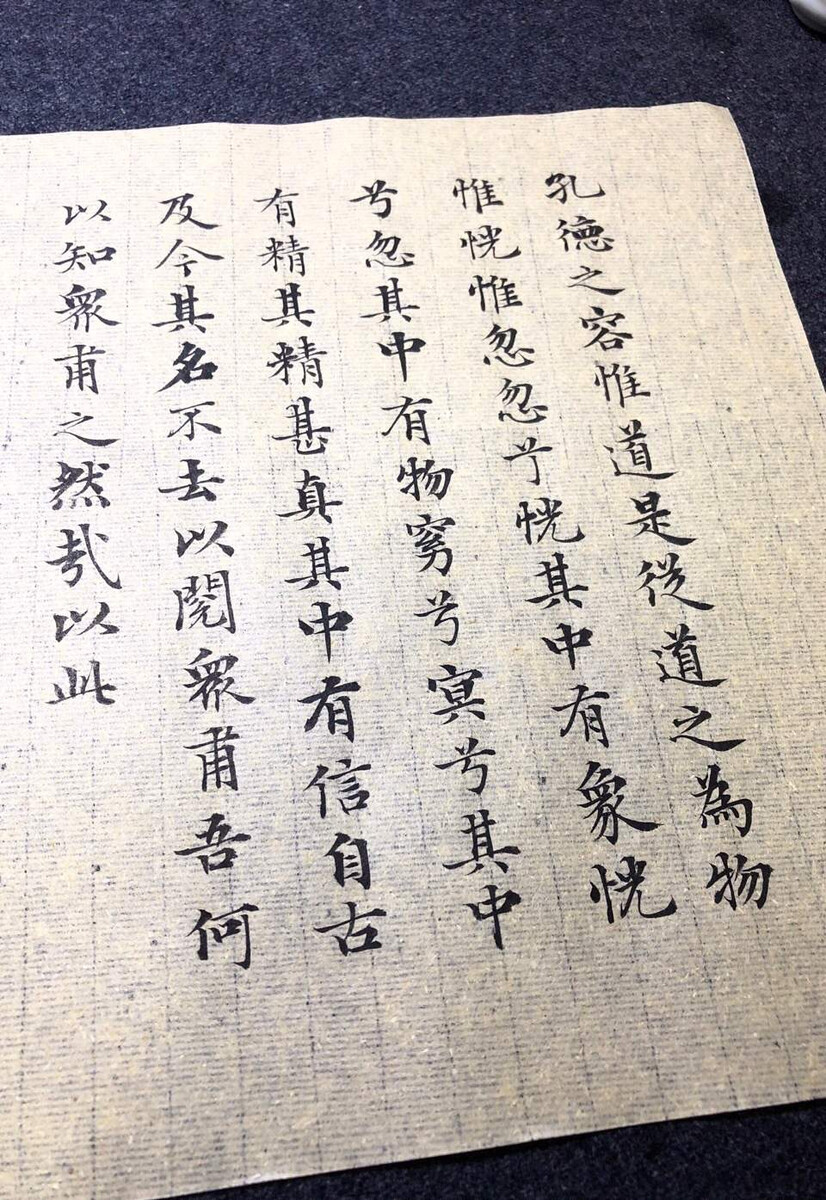 孔德之容惟道是從道之為物
惟恍惟忽忽兮恍其中有象恍
兮忽其中有物窈兮冥兮其中
有精其精甚真其中有信自古
及今其名不去以閱衆甫吾何
以知衆甫之然哉以此